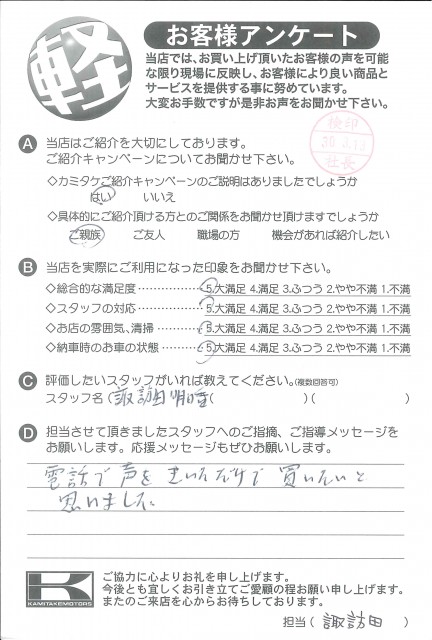 軽
お客様アンケート
当店では、お買い上げ頂いたお客様の声を可能
な限り現場に反映し、お客様により良い商品と
サービスを提供する事に努めています。
大変お手数ですが是非お声をお聞かせ下さい。
検印
30.3.13
社長
A 当店はご紹介を大切にしております。
ご紹介キャンペーンについてお聞かせ下さい。
◇カミタケご紹介キャンペーンのご説明はありましたでしょうか
はい いいえ
◇具体的にご紹介頂ける方とのご関係をお聞かせ頂けますでしょうか
ご親族 ご友人 職場の方 機会があれば紹介したい
B 当店を実際にご利用になった印象をお聞かせ下さい。
◇総合的な満足度⋯⋯⋯⋯⋯ 5.大満足 4.満足 3.ふつう 2.やや不満 1.不満
◇スタッフの対応⋯⋯⋯⋯⋯ 5.大満足 4.満足 3.ふつう 2.やや不満 1.不満
◇お店の雰囲気、清掃⋯⋯⋯ 5.大満足 4.満足 3.ふつう 2.やや不満 1.不満
◇納車時のお車の状態⋯⋯⋯ 5.大満足 4.満足 3.ふつう 2.やや不満 1.不満
C 評価したいスタッフがいれば教えてください。(複数回答可)
スタッフ名 (諏訪田 明 ( ) ( )
D 担当させて頂きましたスタッフへのご指摘、ご指導メッセージを
お願いします。応援メッセージもぜひお願いします。
電話で声をきいただけで買いたいと
思いました
K
KAMITAKEMOTORS
ご協力に心よりお礼を申し上げます。
今後とも宜しくお引き立てご愛顧の程お願い申し上げます。
またのご来店を心からお待ちしております。
担当 ( 諏訪田 )